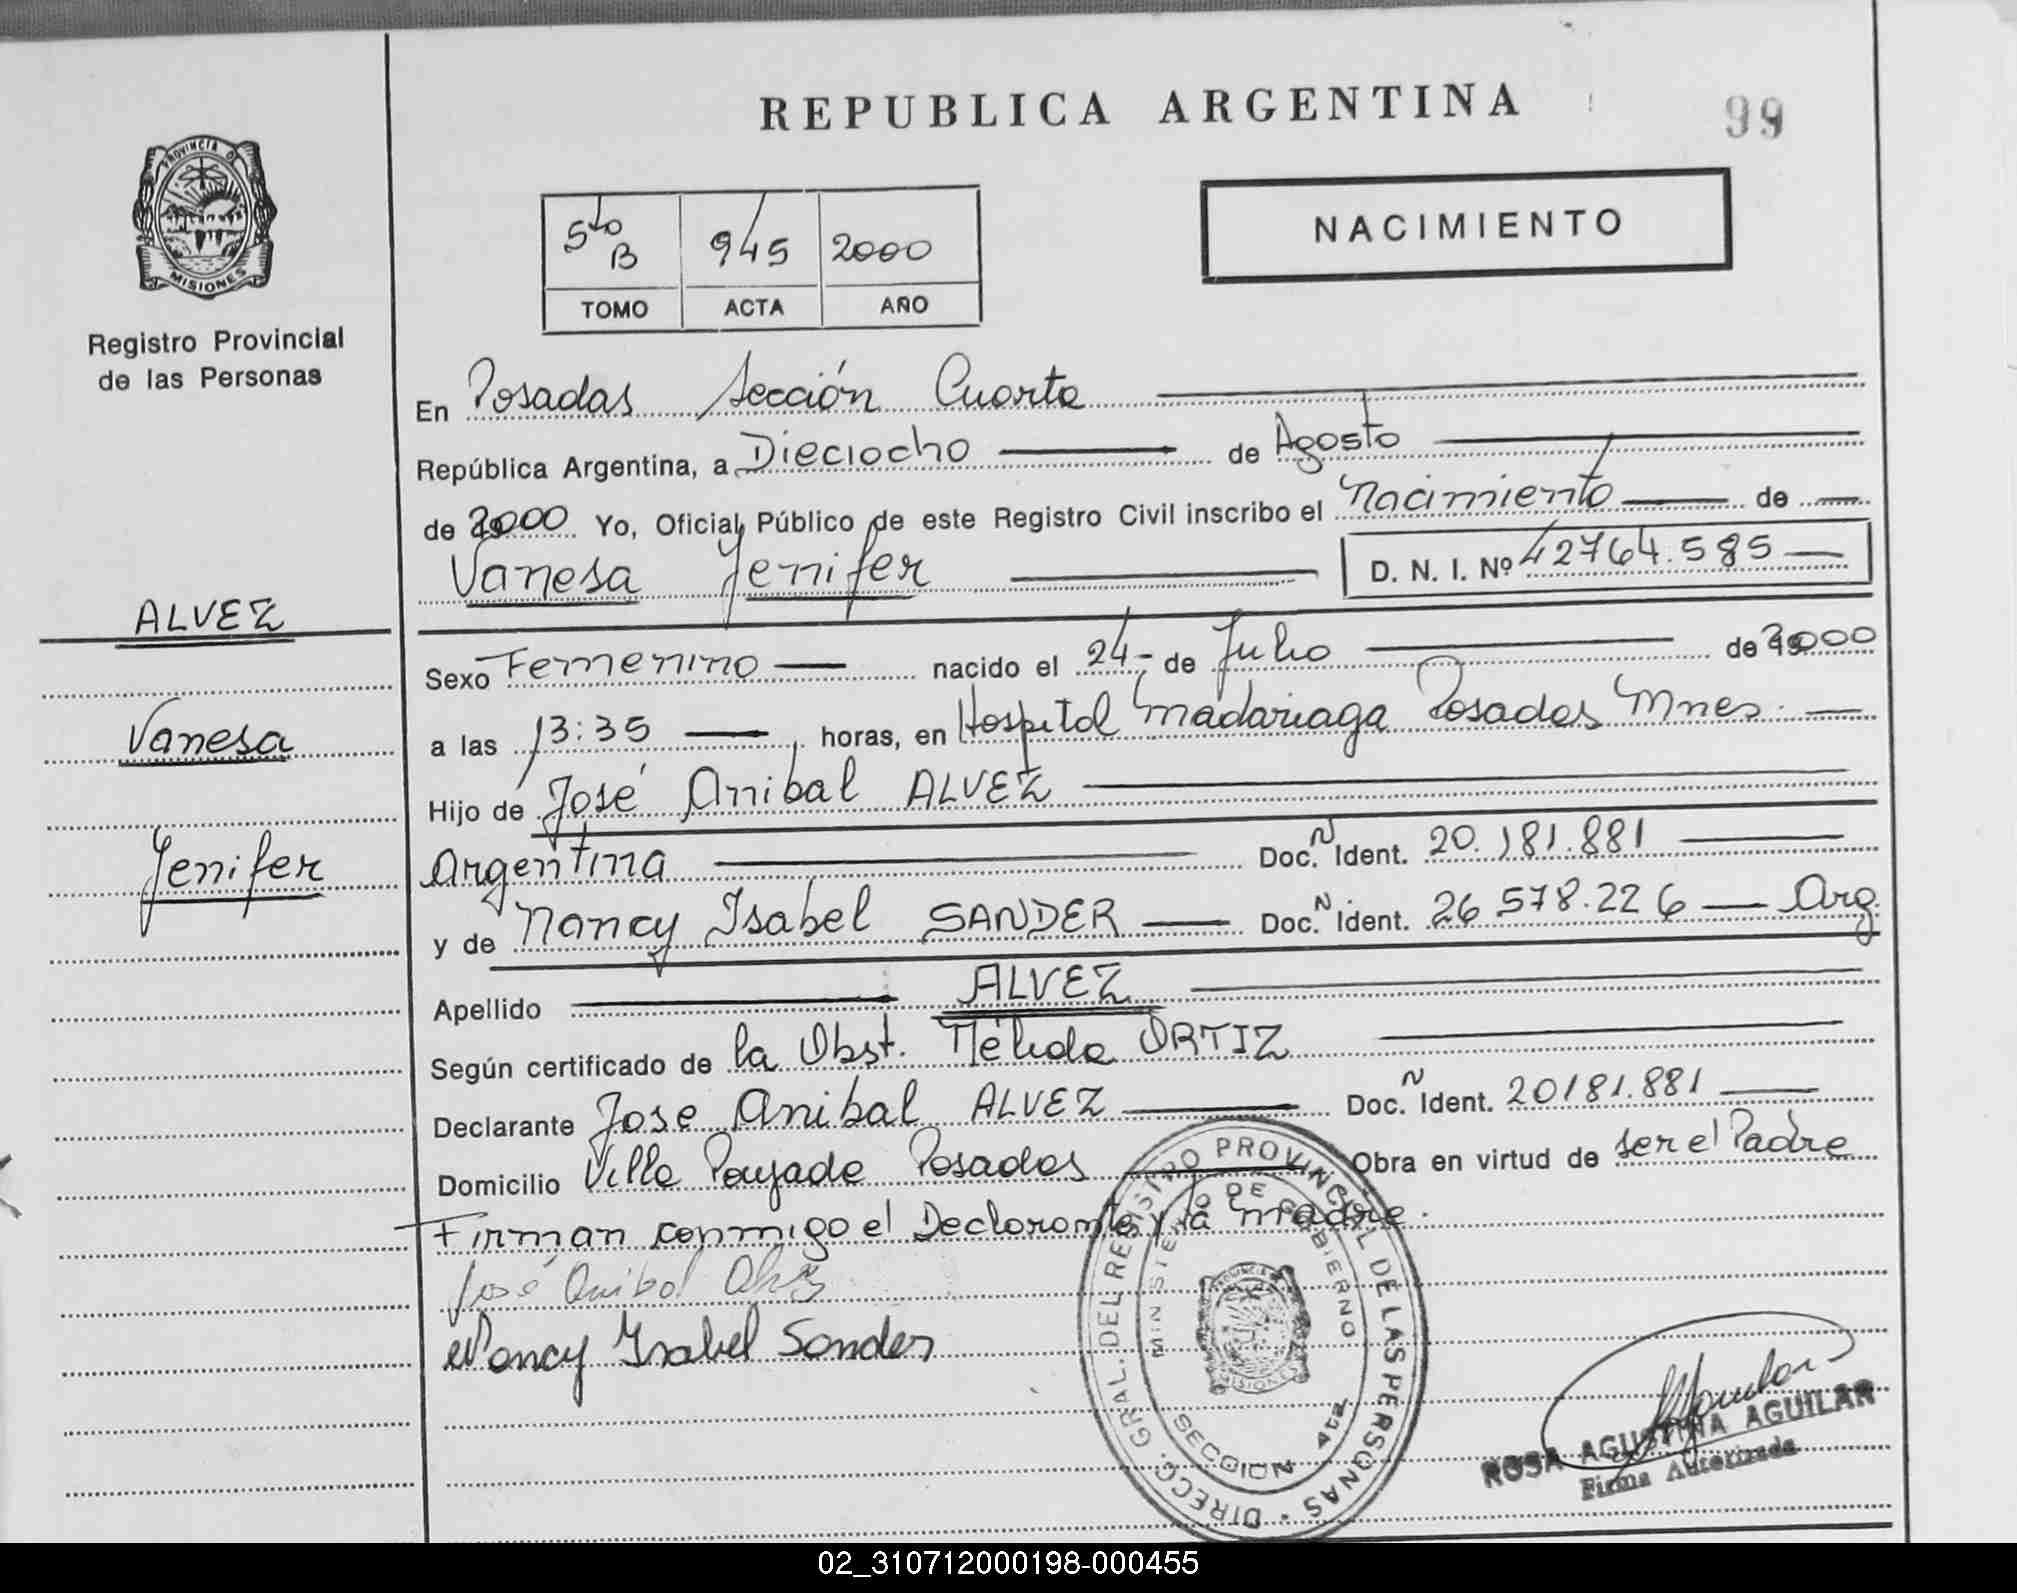 REPUBLICA ARGENTINA
99
PROVINCIA DE
MISIONES
Registro Provincial
de las Personas
5to B 945 2000
TOMO ACTA AÑO
NACIMIENTO
En Posadas Sección Cuarta
República Argentina, a Dieciocho de Agosto
de 2000 Yo, Oficial Público de este Registro Civil inscribo el Nacimiento de
Vanesa Jenifer D. N. I. Nº 42764.585
ALVEZ
Vanesa
Jenifer
Sexo Femenino nacido el 24 de Julio de 2000
a las 13:35 horas, en Hospital Madariaga Posadas Mnes.
Hijo de José Anibal ALVEZ
Argentina Doc. N Ident. 20.181.881
y de Nancy Isabel SANDER Doc. N Ident. 26 578.226 Arg.
Apellido ALVEZ
Según certificado de la Obst. Nélida ORTIZ
Declarante Jose Anibal ALVEZ Doc. N Ident. 20181.881
Domicilio Villa Poujade Posadas Obra en virtud de ser el Padre
Firman conmigo el Declarante y la madre.
José Anibal
Nancy Isabel Sander
DIRECC. GRAL. DEL REGISTRO PROVINCIAL DE LAS PERSONAS
MINISTERIO DE GOBIERNO
PROVINCIA DE
MISIONES
SECCION 4ta
ROSA AGUSTINA AGUILAR
Firma Autorizada
02_310712000198-000455